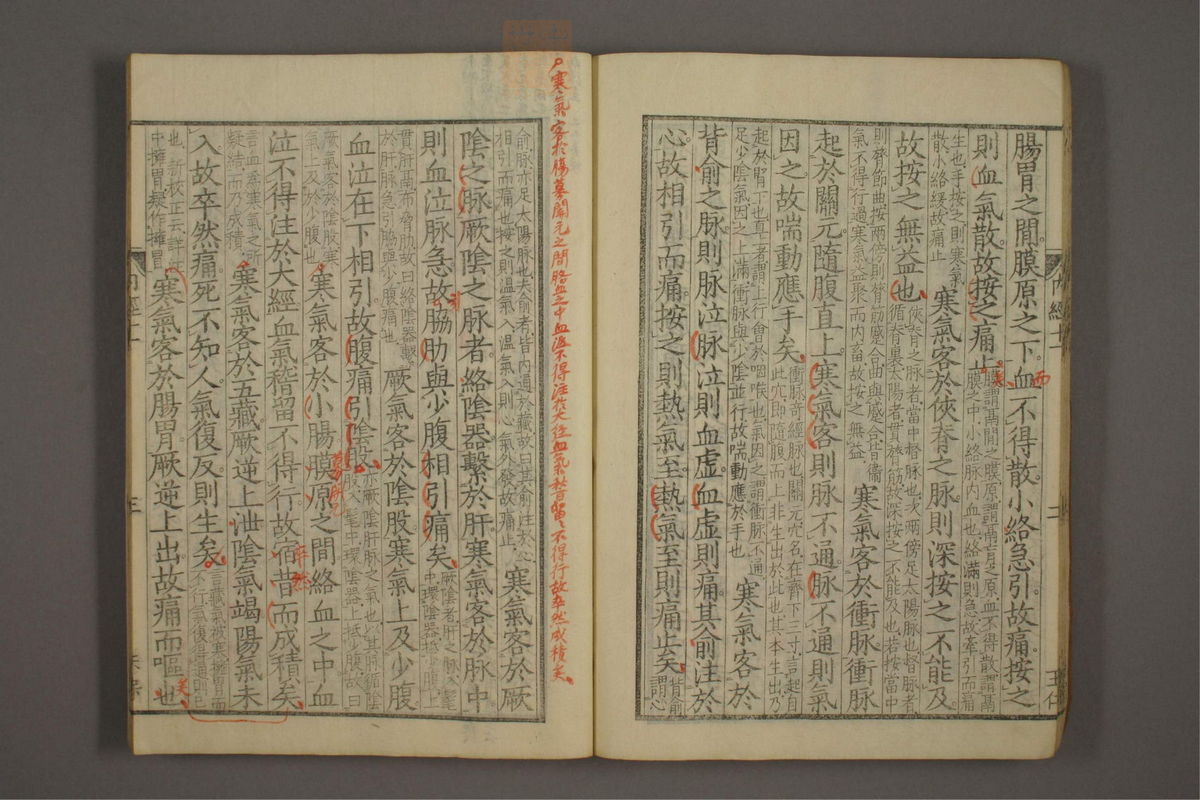 腸胃之間膜原之下血不得散小絡急引故痛按之
則血氣散故按之痛止
膜謂鬲間之膜原謂鬲肓之原血不得散謂鬲
膜之中小絡脉內血也絡滿則急故牽引而痛
生也手按之則寒氣
散小絡緩故痛止
寒氣客於俠脊之脉則深按之不能及
故按之無益也
俠脊之脉者當中督脉也次兩傍足太陽脉也督脉者
循脊裏太陽者貫膂筋故深按之不能及也若按當中
則脊節曲按兩傍則膂筋蹙合曲與蹙合皆衛
氣不得行過寒氣益聚而內畜故按之無益
寒氣客於衝脉衝脉
起於關元隨腹直上寒氣客則脉不通脉不通則氣
因之故喘動應手矣
衝脉奇經脉也關元穴名在齊下三寸言起自
此穴即隨腹而上非生出於此也其本生出乃
起於腎下也直上者謂上行會於咽喉也氣因之謂衝脉不通
足少陰氣因之上滿衝脉與少陰並行故喘動應於手也
寒氣客於
背俞之脉則脉泣脉泣則血虛血虛則痛其俞注於
心故相引而痛按之則熱氣至熱氣至則痛止矣
背俞
謂心
寒氣客於腸募關元之間胳血之中血泣不得注於大經血氣稽留不得行故卒然成積矣
俞脉亦足太陽脉也夫俞者皆內通於藏故曰其俞注於心
相引而痛也按之則溫氣入溫氣入則心氣外發故痛止
寒氣客於厥
陰之脉厥陰之脉者絡陰器繫於肝寒氣客於脉中
則血泣脉急故脇肋與少腹相引痛矣
厥陰者肝之脉入髦
中環陰器抵少腹上
貫肝鬲布脅肋故曰絡陰器繫
於肝脉急引脇與少腹痛也
厥氣客於陰股寒氣上及少腹
血泣在下相引故腹痛引陰股
亦厥陰肝脉之氣也以其脉循陰
股入髦中環陰器上抵少腹故曰
厥氣客於陰股寒
氣上及於少腹也
寒氣客於小腸膜原之間絡血之中血
泣不得注於大經血氣稽留不得行故宿昔而成積矣
卒然
言血為寒氣之所
凝結而乃成積
寒氣客於五藏厥逆上泄陰氣竭陽氣未
入故卒然痛死不知人氣復反則生矣
言藏氣被寒擁胃而
不行氣復得通則已
也新校正云詳注
中擁胃疑作擁冒
寒氣客於腸胃厥逆上出故痛而嘔也
矣